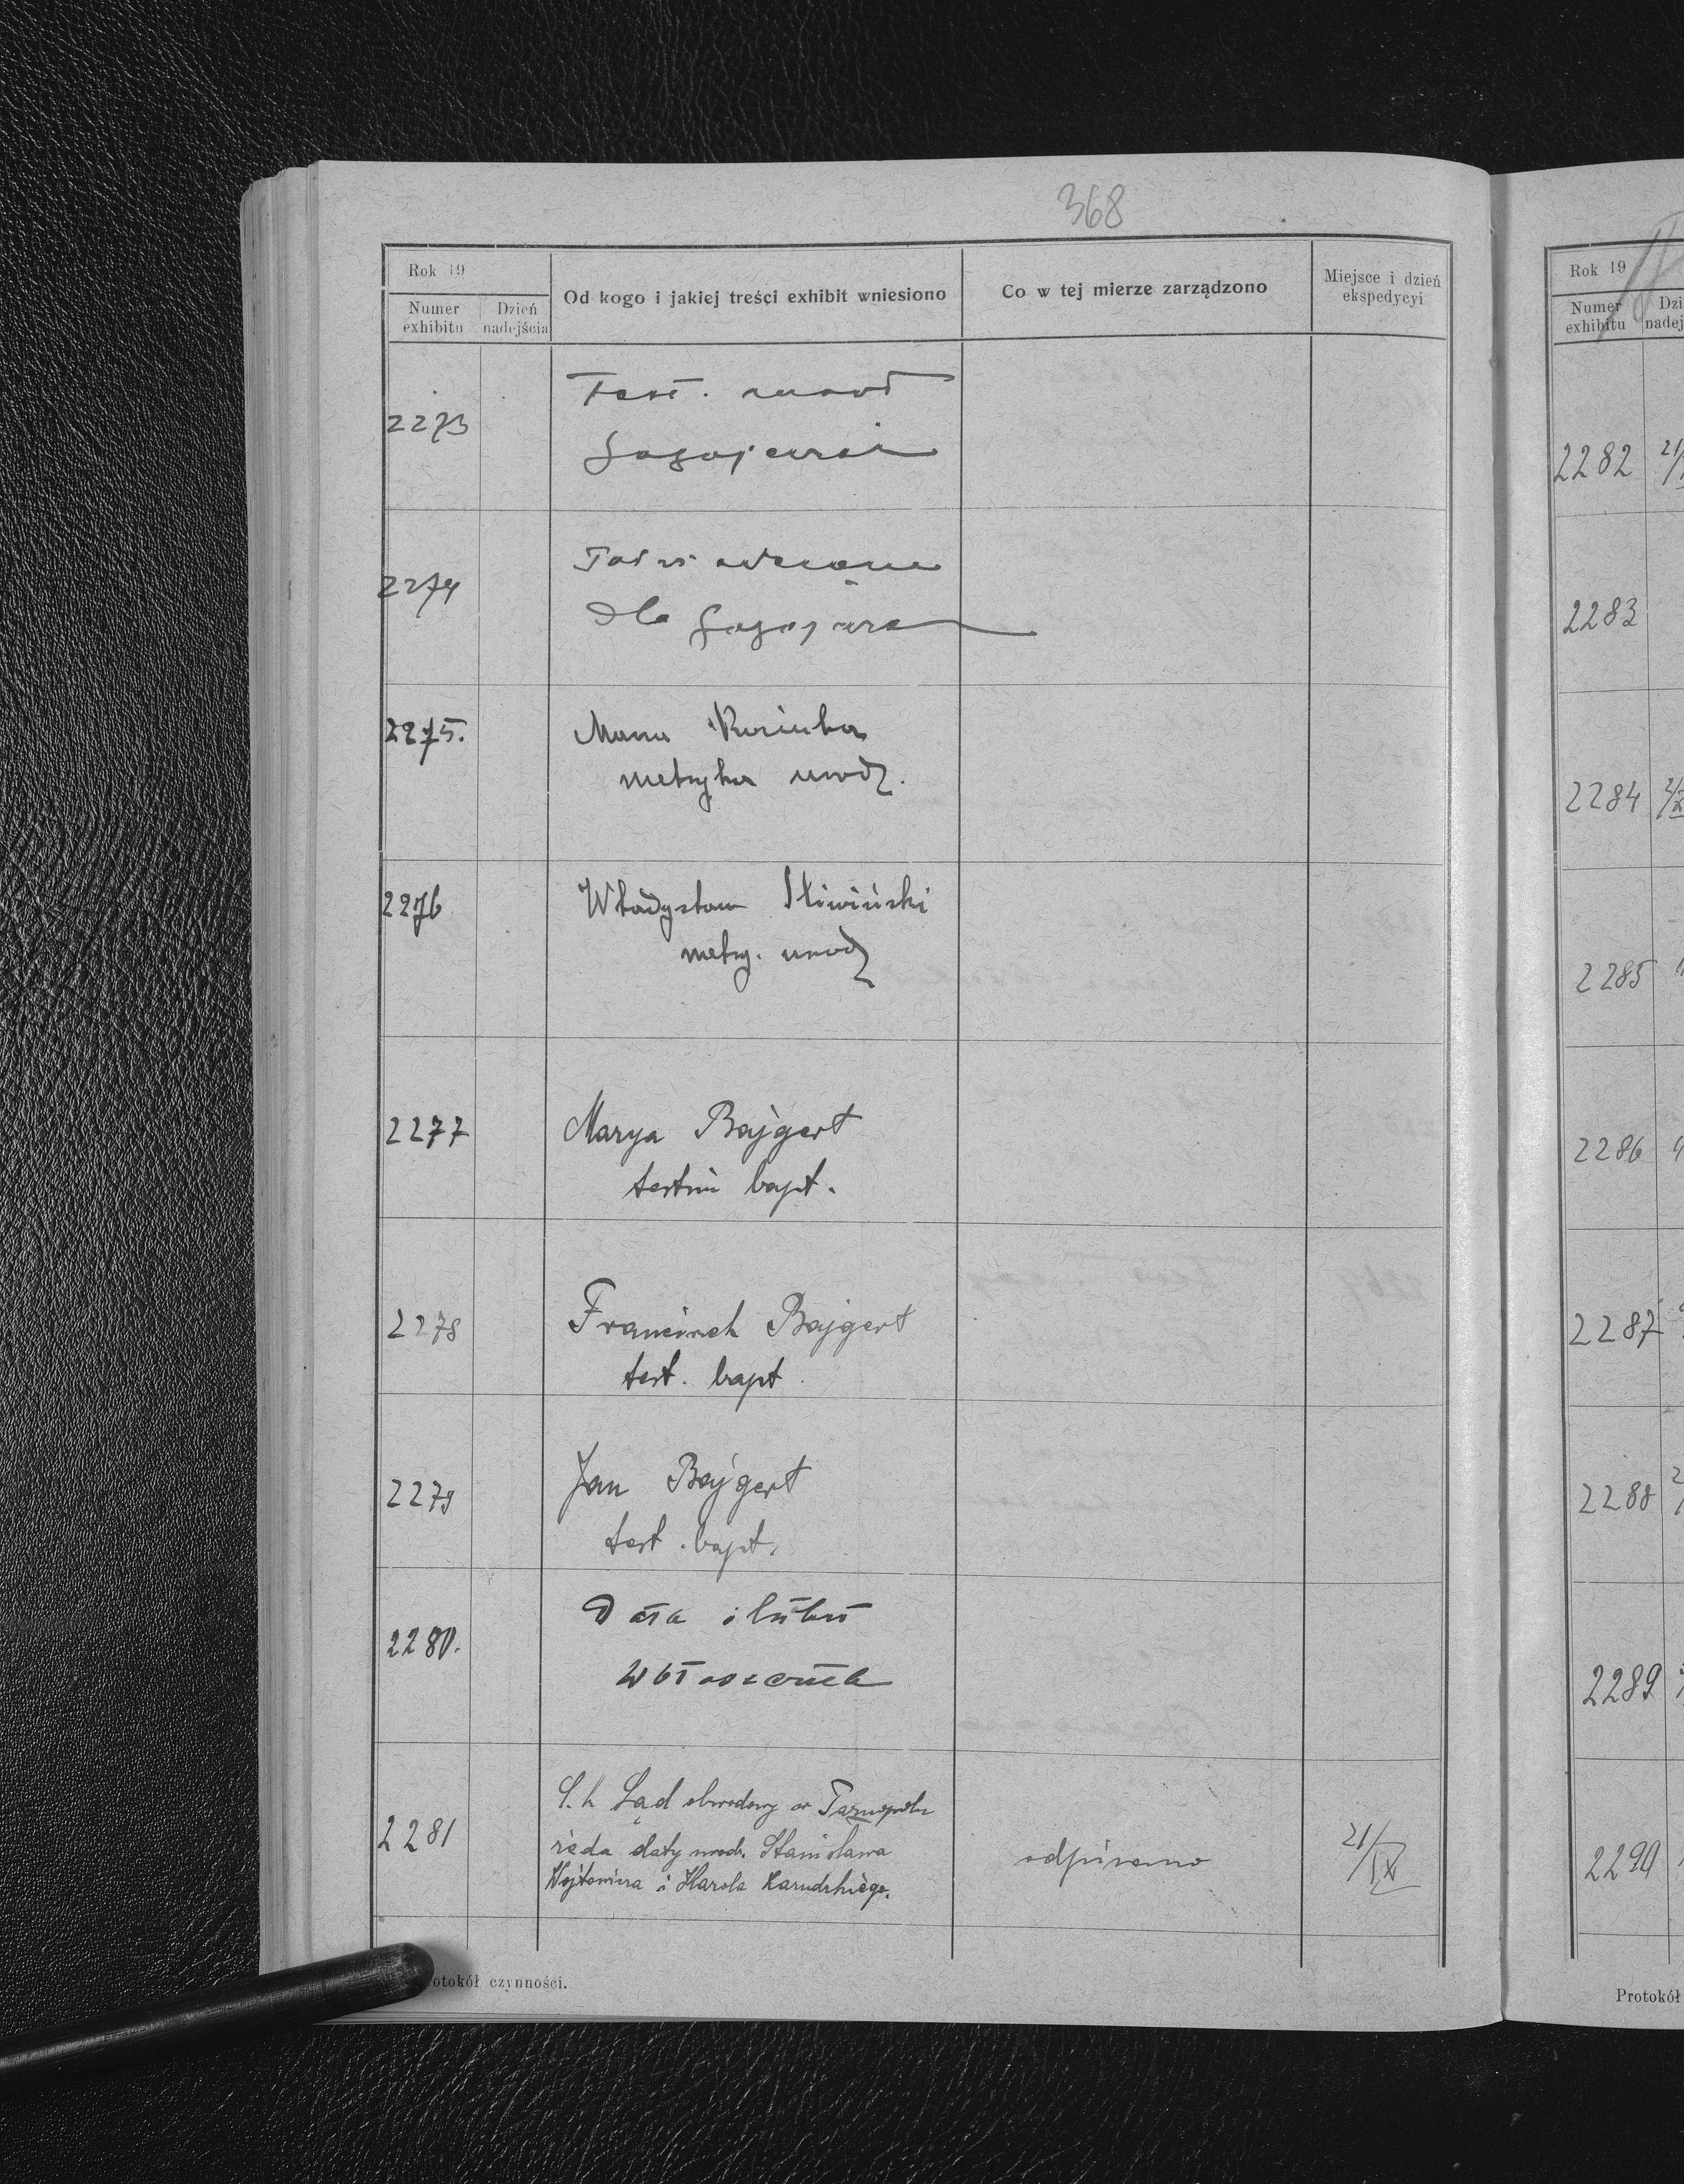 368
Rok 19
Numer exhibitu
Dzień nadejścia
Od kogo i jakiej treści exhibit wniesiono
Co w tej mierze zarządzono
Miejsce i dzień ekspedycyi
2273
Test.
2274
dla
2275.
metryka urodz.
2276
Władysław Śliwiński
metry. urodz
2277
Marya Bajgert
testim bapt.
2278
Franciszek Bajgert
test. bapt.
2279
Jan Bajgert
test. bapt.
2280.
Data i
2281
Sąd obwodowy w Tarnopolu
żąda daty urodz. Stanisława
Wojtowicza i Karola
odpisano
21/IX
Protokół czynności.
Rok 19
Numer exhibitu
2282
2283
2284
2285
2286
2287
2288
2289
2290
Protokół